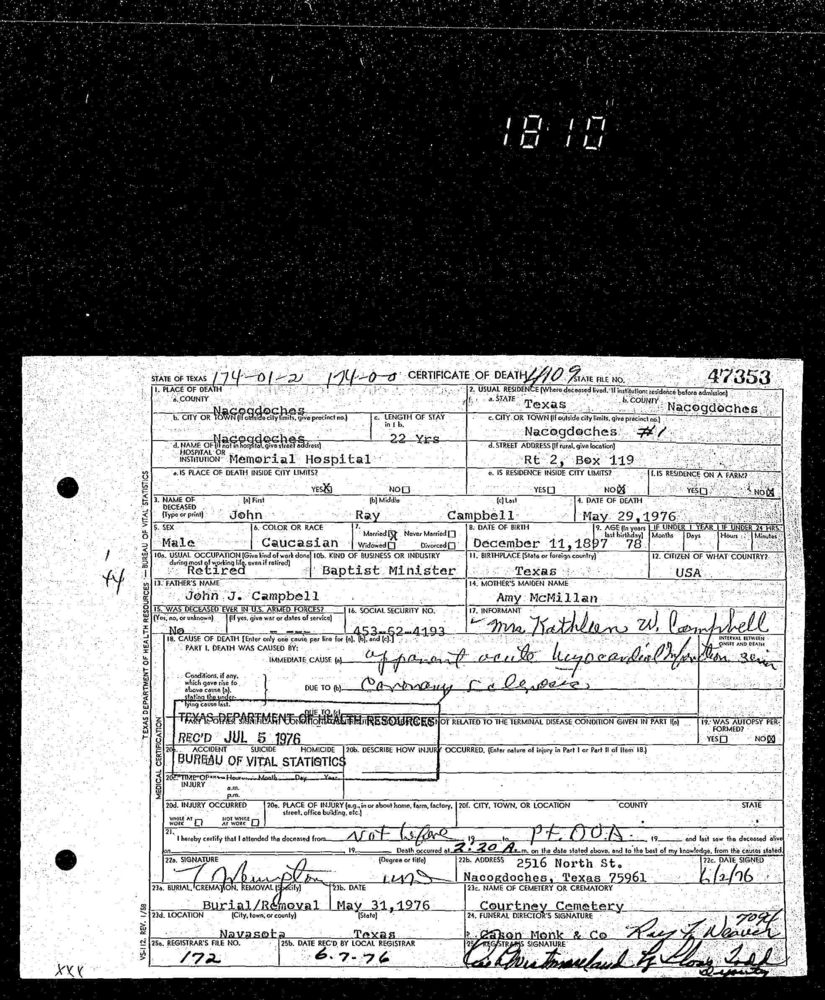 18 10
STATE OF TEXAS 174-01-2 174-0-0 CERTIFICATE OF DEATH 4109 STATE FILE NO. 47353
1. PLACE OF DEATH
a. COUNTY
Nacogdoches
2. USUAL RESIDENCE (Where deceased lived. If institution: residence before admission)
a. STATE Texas b. COUNTY Nacogdoches
b. CITY OR TOWN (If outside city limits, give precinct no.)
Nacogdoches
c. LENGTH OF STAY in 1 b.
22 Yrs
c. CITY OR TOWN (If outside city limits, give precinct no.)
Nacogdoches #1
d. NAME OF (If not in hospital, give street address)
HOSPITAL OR
INSTITUTION Memorial Hospital
d. STREET ADDRESS (If rural, give location)
Rt 2, Box 119
e. IS PLACE OF DEATH INSIDE CITY LIMITS?
YES X NO
e. IS RESIDENCE INSIDE CITY LIMITS?
YES NO X
f. IS RESIDENCE ON A FARM?
YES NO X
3. NAME OF DECEASED (Type or print)
(a) First (b) Middle (c) Last
John Ray Campbell
4. DATE OF DEATH
May 29, 1976
5. SEX
Male
6. COLOR OR RACE
Caucasian
7.
Married X Never Married
Widowed Divorced
8. DATE OF BIRTH
December 11, 1897
9. AGE (In years last birthday) 78
IF UNDER 1 YEAR
Months Days
IF UNDER 24 HRS.
Hours Minutes
10a. USUAL OCCUPATION (Give kind of work done during most of working life, even if retired)
Retired
10b. KIND OF BUSINESS OR INDUSTRY
Baptist Minister
11. BIRTHPLACE (State or foreign country)
Texas
12. CITIZEN OF WHAT COUNTRY?
USA
13. FATHER'S NAME
John J. Campbell
14. MOTHER'S MAIDEN NAME
Amy McMillan
15. WAS DECEASED EVER IN U.S. ARMED FORCES?
(Yes, no, or unknown) (If yes, give war or dates of service)
No - ---
16. SOCIAL SECURITY NO.
453-62-4193
17. INFORMANT
Mrs Kathleen W. Campbell
18. CAUSE OF DEATH [Enter only one cause per line for (a), (b), and (c).]
PART I. DEATH WAS CAUSED BY:
INTERVAL BETWEEN ONSET AND DEATH
IMMEDIATE CAUSE (a) apparent acute myocardial infarction
Conditions, if any, which gave rise to above cause (a), stating the underlying cause last.
DUE TO (b) Coronary sclerosis
DUE TO (c)
NOT RELATED TO THE TERMINAL DISEASE CONDITION GIVEN IN PART I(a)
19. WAS AUTOPSY PERFORMED?
YES NO X
TEXAS DEPARTMENT OF HEALTH RESOURCES
REC'D JUL 5 1976
BUREAU OF VITAL STATISTICS
ACCIDENT SUICIDE HOMICIDE
20b. DESCRIBE HOW INJURY OCCURRED. (Enter nature of injury in Part I or Part II of Item 18.)
20c. TIME OF INJURY Hour Month Day Year
a.m.
p.m.
20d. INJURY OCCURRED
WHILE AT WORK NOT WHILE AT WORK
20e. PLACE OF INJURY (e.g., in or about home, farm, factory, street, office building, etc.)
20f. CITY, TOWN, OR LOCATION COUNTY STATE
21.
I hereby certify that I attended the deceased from Not before 19 to Pt. DOA 19 and last saw the deceased alive
on 19 Death occurred at 2:20 A.m. on the date stated above, and to the best of my knowledge, from the causes stated.
22a. SIGNATURE (Degree or title)
MD
22b. ADDRESS 2516 North St.
Nacogdoches, Texas 75961
22c. DATE SIGNED
6/2/76
23a. BURIAL, CREMATION, REMOVAL (Specify)
Burial/Removal
23b. DATE
May 31, 1976
23c. NAME OF CEMETERY OR CREMATORY
Courtney Cemetery
23d. LOCATION (City, town, or county) (State)
Navasota Texas
24. FUNERAL DIRECTOR'S SIGNATURE
7094
Cason Monk & Co Ray F. Weaver
25a. REGISTRAR'S FILE NO.
172
25b. DATE REC'D BY LOCAL REGISTRAR
6-7-76
25c. REGISTRAR'S SIGNATURE
Deputy
TEXAS DEPARTMENT OF HEALTH RESOURCES — BUREAU OF VITAL STATISTICS
MEDICAL CERTIFICATION
VS-112, REV. 1/58
1
44
XXX